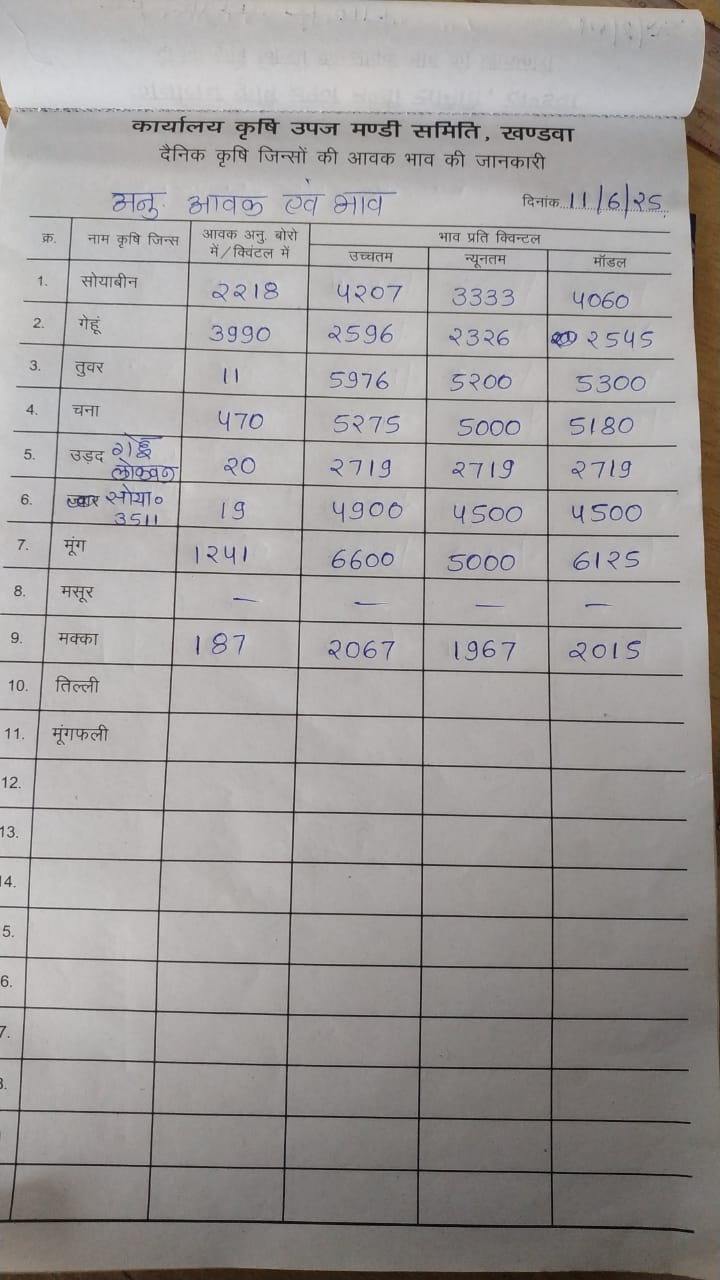 कार्यालय कृषि उपज मण्डी समिति, खण्डवा
दैनिक कृषि जिन्सों की आवक भाव की जानकारी
अनु. आवक एवं भाव दिनांक 11/6/२5
क्र. नाम कृषि जिन्स आवक अनु. बोरो में/क्विंटल में भाव प्रति क्विन्टल
उच्चतम न्यूनतम मॉडल
1. सोयाबीन २२18 4२07 3333 4060
2. गेहूं 3990 २596 २3२6 २545
3. तुवर 11 5976 5२00 5300
4. चना 470 5२75 5000 5180
5. उड़द गेहूँ लोकवन २0 २719 २719 २719
6. ज्वार सोया० 3511 19 4900 4500 4500
7. मूंग 1२41 6600 5000 61२5
8. मसूर — — — —
9. मक्का 187 २067 1967 २015
10. तिल्ली
11. मूंगफली
12.
13.
14.
5.
6.
7.